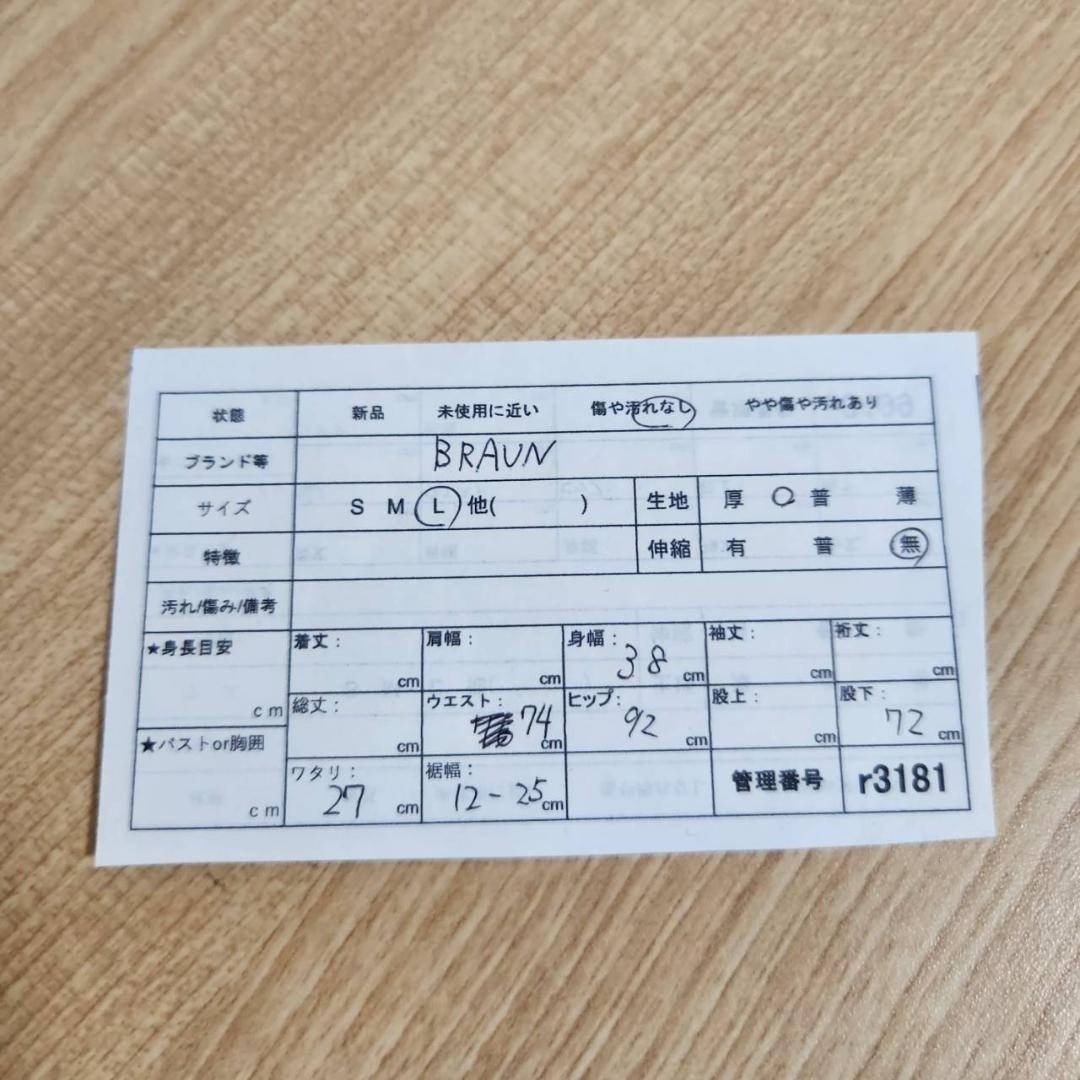 状態 新品 未使用に近い 傷や汚れなし やや傷や汚れあり
ブランド等 BRAUN
サイズ S M L 他( ) 生地 厚 普 薄
特徴 伸縮 有 普 無
汚れ/傷み/備考
★身長目安 cm
着丈: cm 肩幅: cm 身幅: 38 cm 袖丈: cm 裄丈: cm
総丈: cm ウエスト: 74 cm ヒップ: 92 cm 股上: cm 股下: 72 cm
★バストor胸囲 cm
ワタリ: 27 cm 裾幅: 12-25 cm 管理番号 r3181